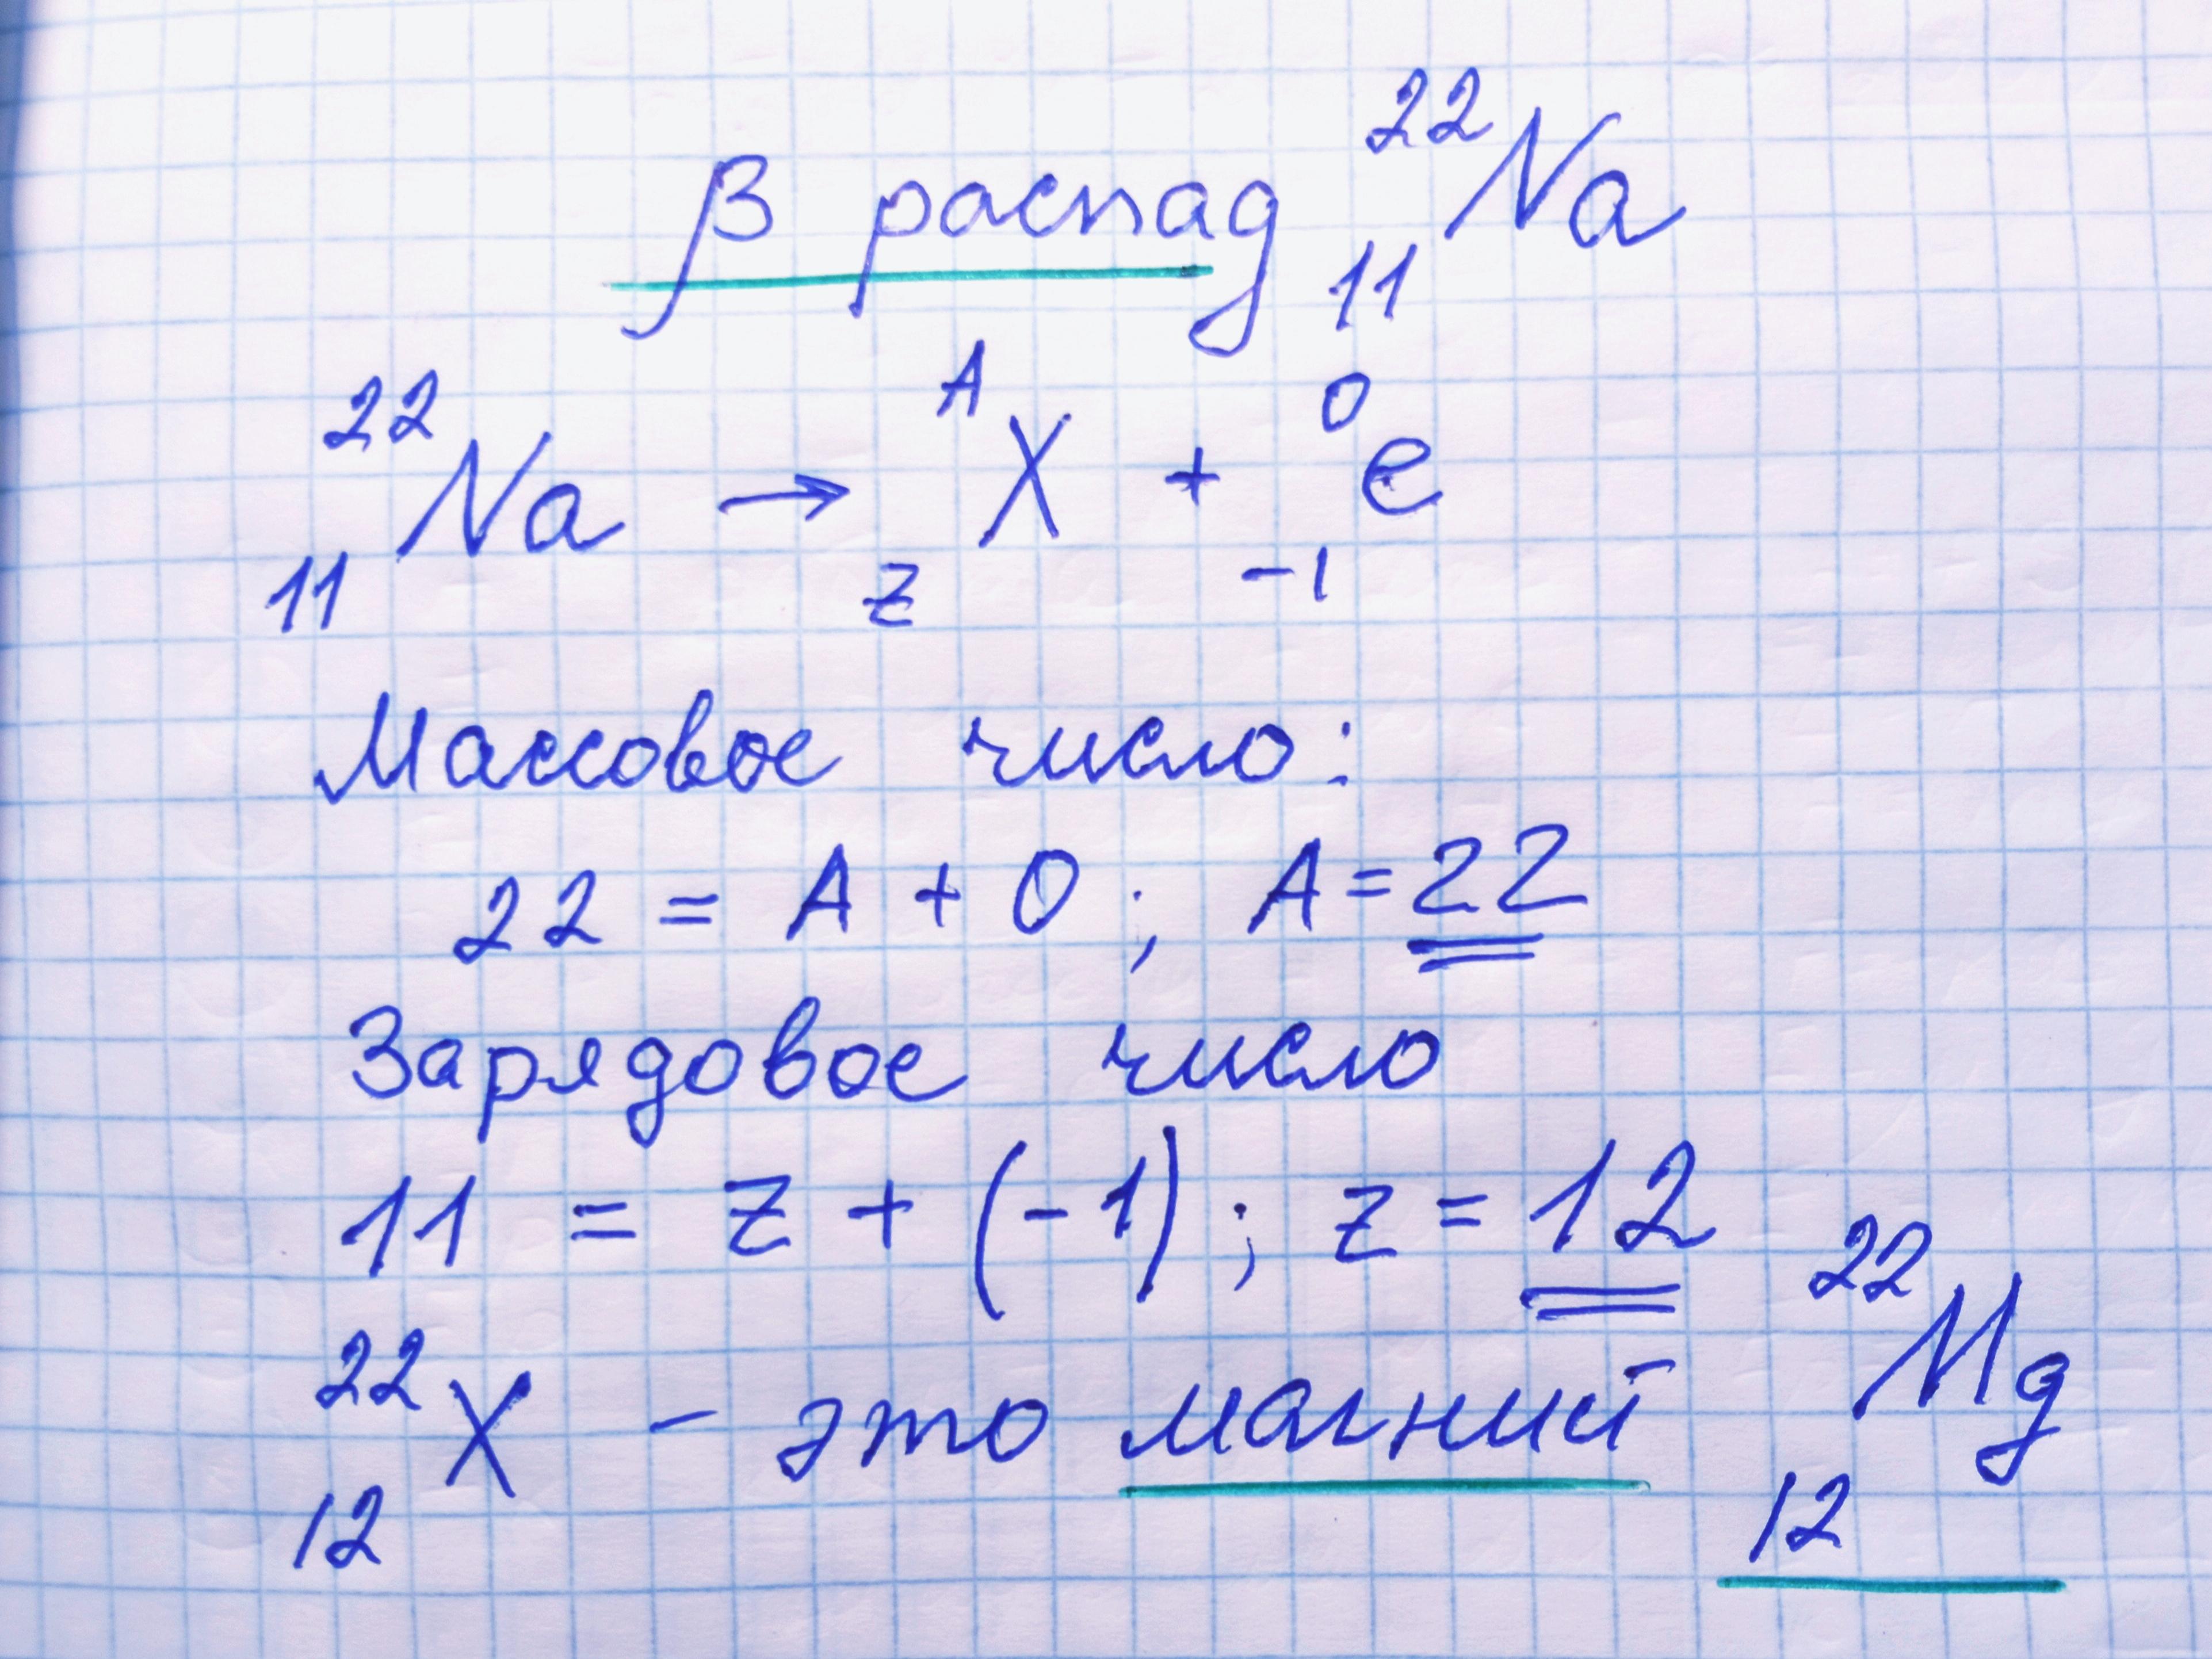 β распад ²²₁₁Na
²²₁₁Na → ᴬ_Z X + ⁰₋₁e
Массовое число:
22 = A + 0; A = 22
Зарядовое число
11 = Z + (-1); Z = 12
²²₁₂X - это магний ²²₁₂Mg